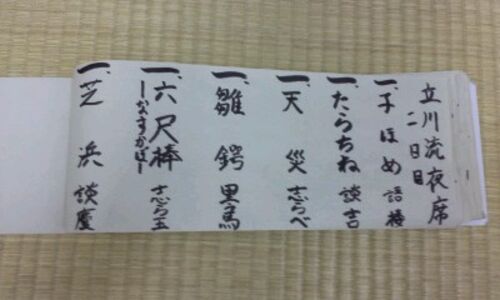 立川流夜席
二日目
一、子ほめ
一、たらちね 談吉
一、天災 志らべ
一、雛鍔
一、六尺棒 志ら玉
ーなすかぼー
一、芝浜 談慶